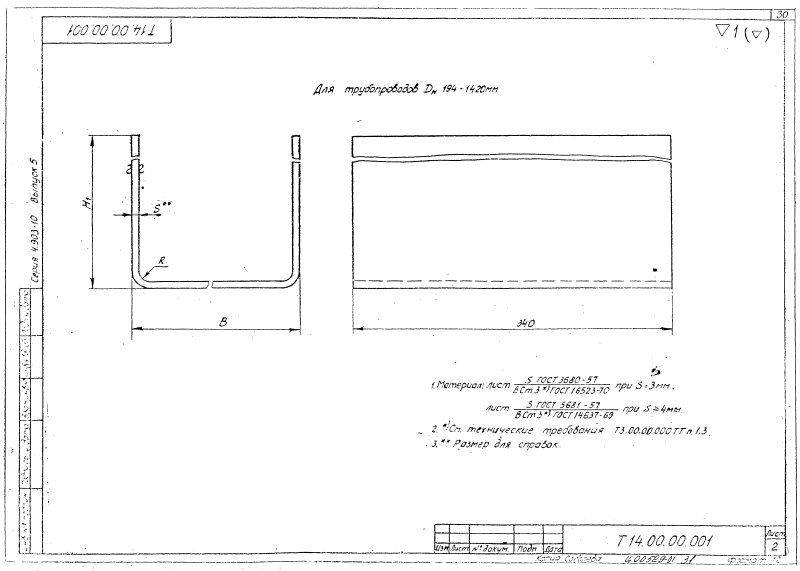 30
Т14.00.00.001
▽1 (▽)
Для трубопроводов Dн 194-1420мм
Серия 4.903-10 Выпуск 5
H1
S**
R
B
340
1. Материал: лист S ГОСТ 3680-57 / ВСт.3*) ГОСТ 16523-70 при S=3мм;
лист S ГОСТ 5681-57 / ВСт3*) ГОСТ 14637-69 при S≥4мм.
2. *) См. технические требования Т3.00.00.000ТТ п.1.3.
3.** Размер для справок.
Изм Лист № докум. Подп. Дата
Т14.00.00.001
Лист
2
Копия 31
Формат